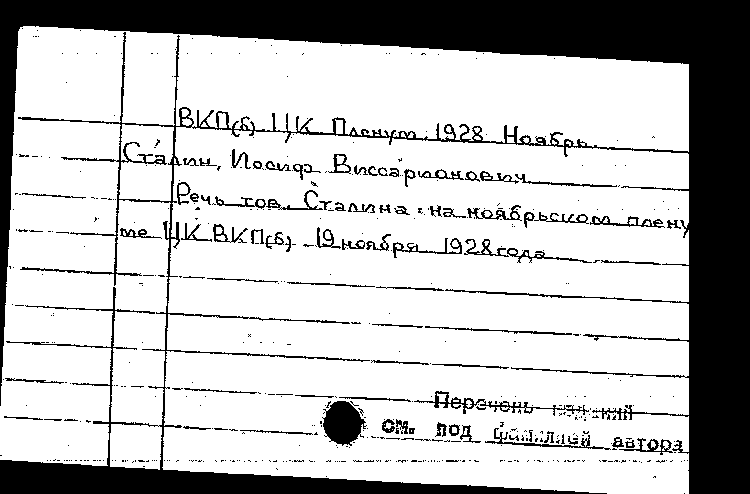 ВКП(б) ЦК Пленум. 1928 Ноябрь.
Сталин, Иосиф Виссарионович
Речь тов. Сталина на ноябрьском плену
ме ЦК ВКП(б) 19 ноября 1928 года
Перечень изданий
см. под фамилией автора